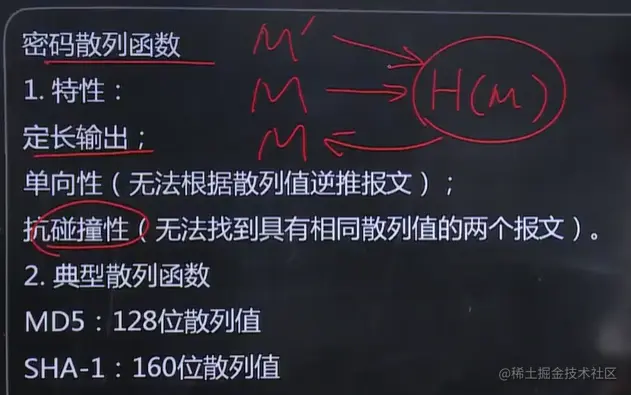 密码散列函数
M′
H(M)
1. 特性：
M
定长输出；
M
单向性（无法根据散列值逆推报文）；
抗碰撞性（无法找到具有相同散列值的两个报文）。
2. 典型散列函数
MD5：128位散列值
SHA-1：160位散列值
@稀土掘金技术社区